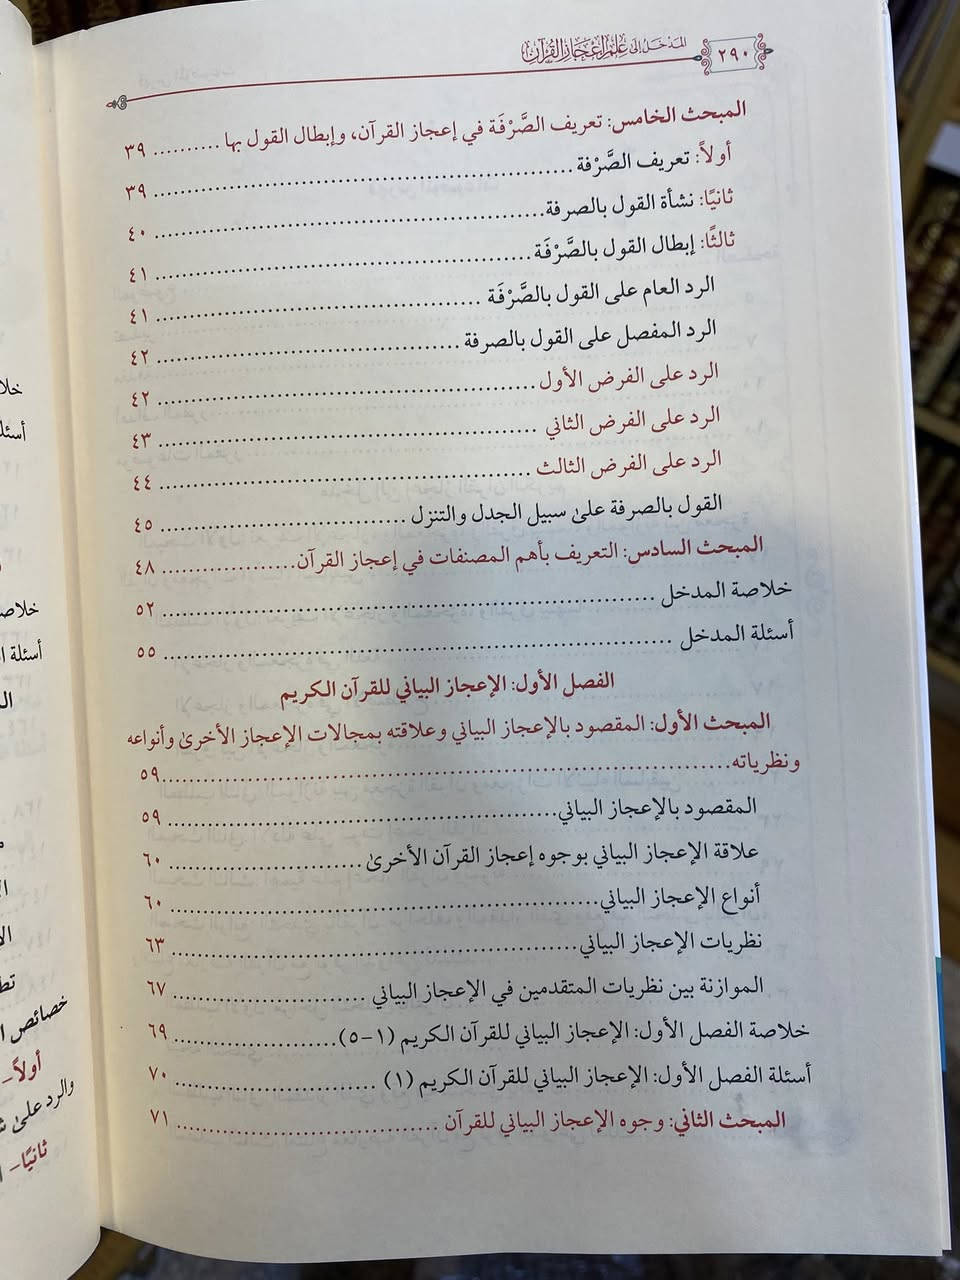 ٢٩٠ المدخل إلى علم إعجاز القرآن
المبحث الخامس: تعريف الصَّرْفَة في إعجاز القرآن، وإبطال القول بها .......... ٣٩
أولاً: تعريف الصَّرْفة ........ ٣٩
ثانيًا: نشأة القول بالصرفة ........ ٤٠
ثالثًا: إبطال القول بالصَّرْفَة ........ ٤١
الرد العام على القول بالصَّرْفَة ........ ٤١
الرد المفصل على القول بالصرفة ........ ٤٢
الرد على الفرض الأول ........ ٤٢
الرد على الفرض الثاني ........ ٤٣
الرد على الفرض الثالث ........ ٤٤
القول بالصرفة علىٰ سبيل الجدل والتنزل ........ ٤٥
المبحث السادس: التعريف بأهم المصنفات في إعجاز القرآن ........ ٤٨
خلاصة المدخل ........ ٥٢
أسئلة المدخل ........ ٥٥
الفصل الأول: الإعجاز البياني للقرآن الكريم
المبحث الأول: المقصود بالإعجاز البياني وعلاقته بمجالات الإعجاز الأخرىٰ وأنواعه
ونظرياته ........ ٥٩
المقصود بالإعجاز البياني ........ ٥٩
علاقة الإعجاز البياني بوجوه إعجاز القرآن الأخرىٰ ........ ٦٠
أنواع الإعجاز البياني ........ ٦٠
نظريات الإعجاز البياني ........ ٦٣
الموازنة بين نظريات المتقدمين في الإعجاز البياني ........ ٦٧
خلاصة الفصل الأول: الإعجاز البياني للقرآن الكريم (١-٥) ........ ٦٩
أسئلة الفصل الأول: الإعجاز البياني للقرآن الكريم (١) ........ ٧٠
المبحث الثاني: وجوه الإعجاز البياني للقرآن ........ ٧١
خصائص
أولاً-
والرد علىٰ
ثانيًا-